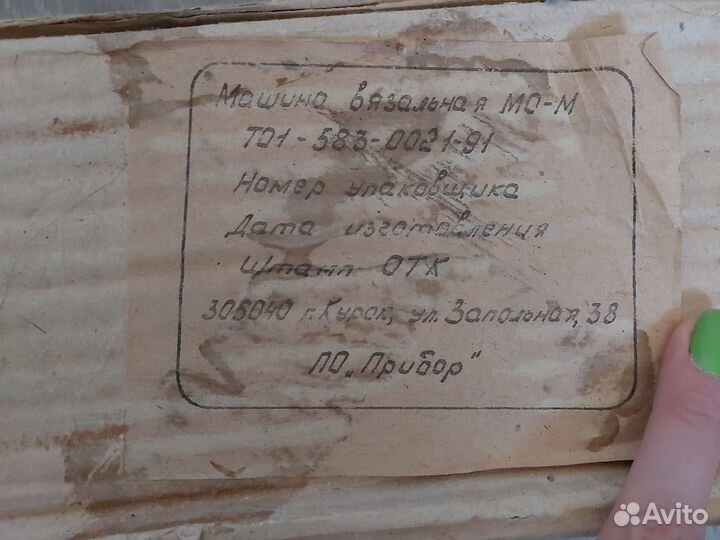 Машина вязальная МО-М
ТО1-583-0021-91
Номер упаковщика
Дата изготовления
Штамп ОТК
305040 г. Курск, ул. Запольная, 38
ПО „Прибор"
Avito